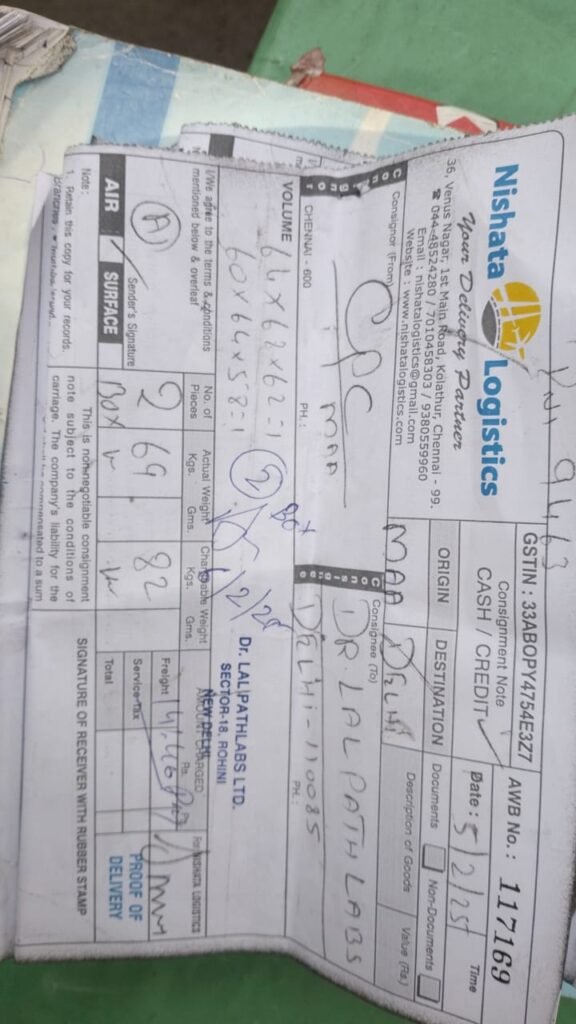 PNJ 9463
Nishata Logistics
Your Delivery Partner
36, Venus Nagar, 1st Main Road, Kolathur, Chennai - 99.
☎ 044-48524280 / 7010458303 / 9380559960
Email : nishatalogistics@gmail.com
Website : www.nishatalogistics.com
GSTIN : 33ABOPY4754E3Z7
Consignment Note
CASH / CREDIT ✓
AWB No. : 117169
Date : 5/2/25 Time
ORIGIN DESTINATION
MAA DELHI
Documents Non-Documents
Description of Goods Value (Rs.)
Consignor (From)
CPC
MAA
CHENNAI - 600 PH. :
Consignee (To)
DR. LAL PATH LABS
DELHI - 110085
PH. :
VOLUME
64x62x62=1
60x64x58=1
(2)
Dr. LAL PATHLABS LTD.
SECTOR-18, ROHINI
NEW DELHI
I/We agree to the terms & conditions
mentioned below & overleaf
(A)
Sender's Signature
AIR ✓ SURFACE
No. of Pieces
2
BOX
Actual Weight
Kgs. Gms.
69
Chargable Weight
Kgs. Gms.
82
AMOUNT CHARGED
Rs.
Freight
Service-tax
Total
For NISHATA LOGISTICS
PROOF OF DELIVERY
Note :
1. Retain this copy for your records.
This is non-negotiable consignment
note subject to the conditions of
carriage. The company's liability for the
compensated to a sum
SIGNATURE OF RECEIVER WITH RUBBER STAMP